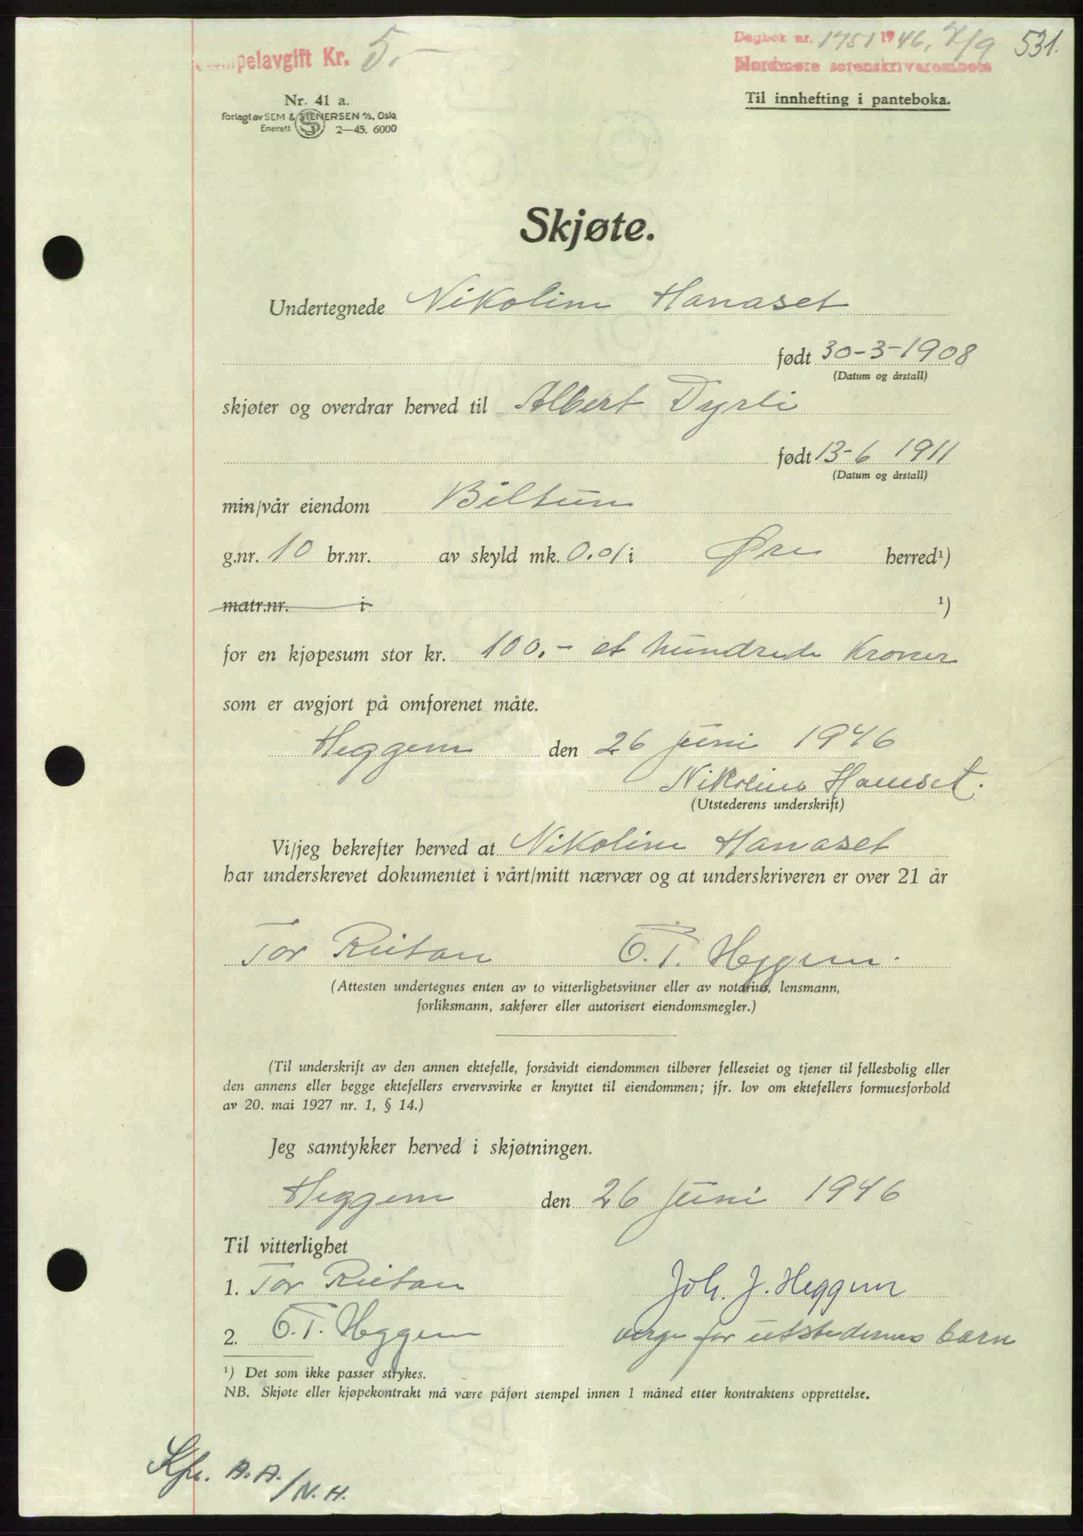 Stempelavgift Kr. 5.-
Dagbok nr. 1751 1946, 7/9 531.
Nordmøre sorenskriverembete
Nr. 41 a.
Forlagt av SEM & STENERSEN A/S, Oslo
Enerett S 2—45. 6000
Til innhefting i panteboka.
Skjøte.
Undertegnede Nikoline Hanaset
født 30-3-1908
(Datum og årstall)
skjøter og overdrar herved til Albert Dyrli
født 13-6 1911
(Datum og årstall)
min/vår eiendom Biltun
g.nr. 10 br.nr. av skyld mk. 0.01 i Øre herred¹)
matr.nr. i ¹)
for en kjøpesum stor kr. 100,- et hundrede Kroner
som er avgjort på omforenet måte.
Heggem den 26 juni 1946
Nikoline Hanaset.
(Utstederens underskrift)
Vi/jeg bekrefter herved at Nikoline Hanaset
har underskrevet dokumentet i vårt/mitt nærvær og at underskriveren er over 21 år
Tor Reitan O.T. Heggem.
(Attesten undertegnes enten av to vitterlighetsvitner eller av notarius, lensmann,
forliksmann, sakfører eller autorisert eiendomsmegler.)
(Til underskrift av den annen ektefelle, forsåvidt eiendommen tilhører felleseiet og tjener til fellesbolig eller
den annens eller begge ektefellers ervervsvirke er knyttet til eiendommen; jfr. lov om ektefellers formuesforhold
av 20. mai 1927 nr. 1, § 14.)
Jeg samtykker herved i skjøtningen.
Heggem den 26 juni 1946
Til vitterlighet
1. Tor Reitan Joh. J. Heggem
2. O.T. Heggem verge for utstederens barn
¹) Det som ikke passer strykes.
NB. Skjøte eller kjøpekontrakt må være påført stempel innen 1 måned etter kontraktens opprettelse.
Kfr. A.A./N.H.